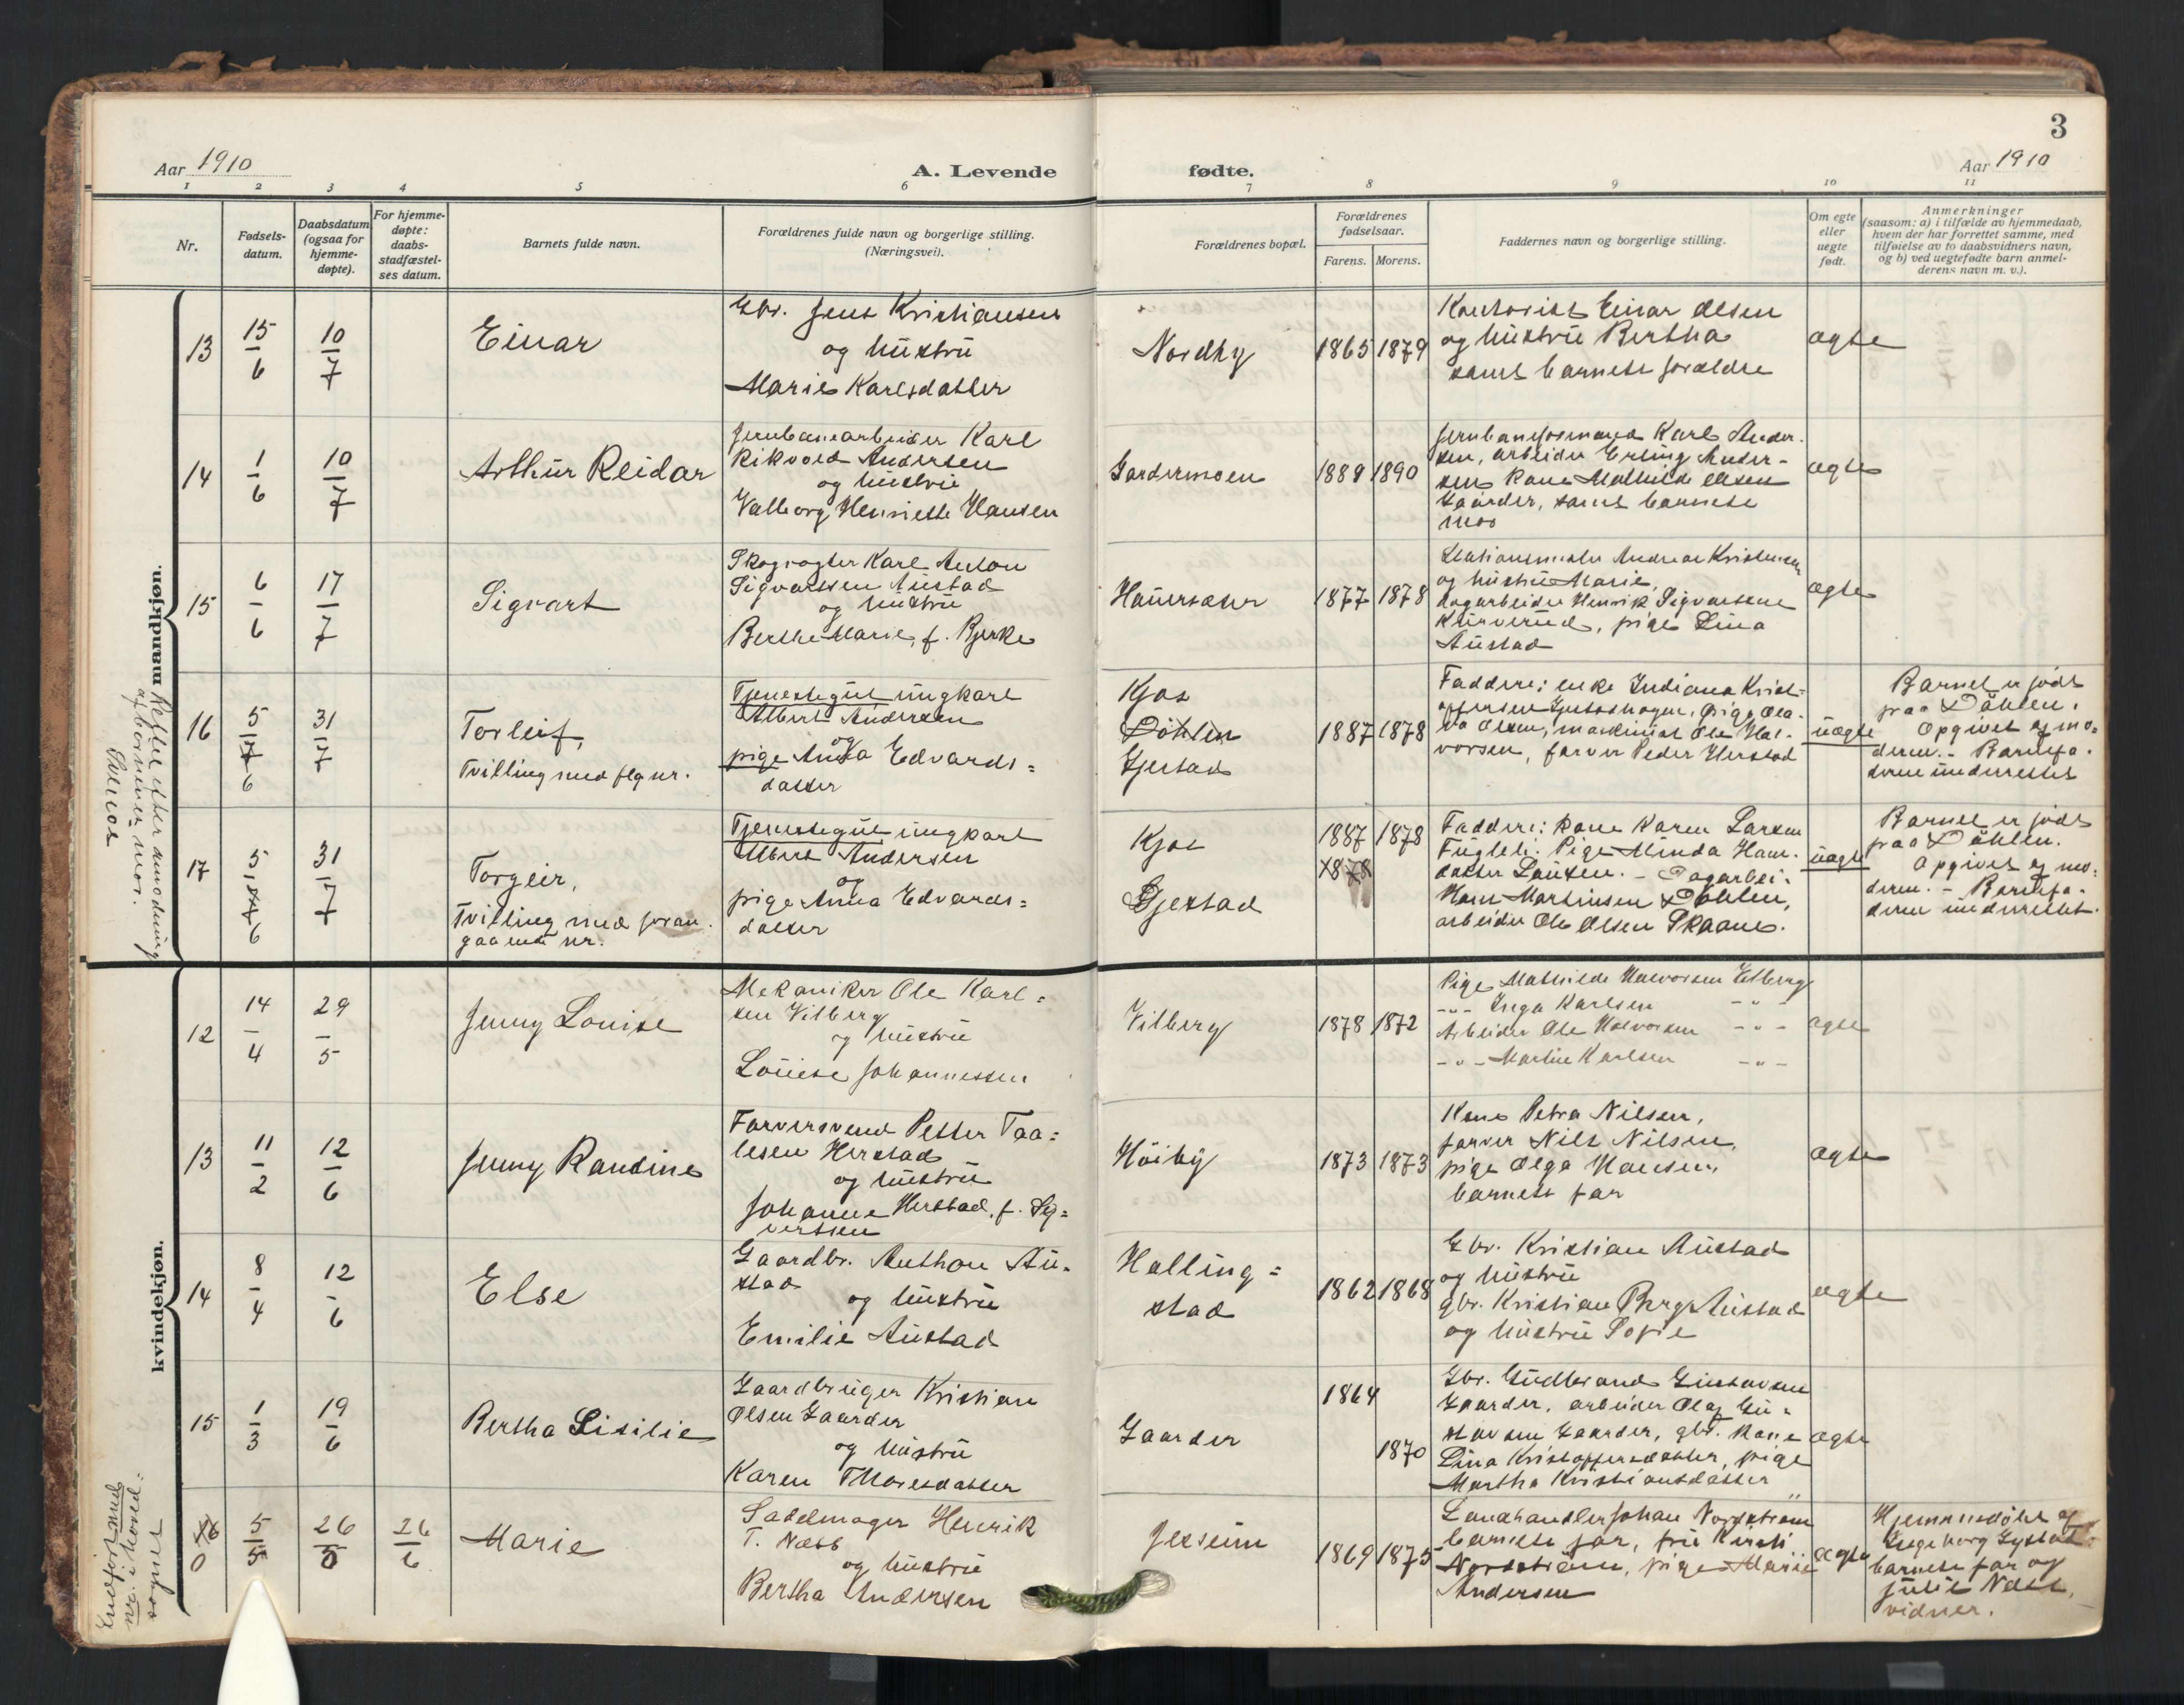 3
Aar 1910
A. Levende
fødte.
Aar 1910
1 2 3 4 5 6 7 8 9 10 11
Nr.
Fødsels-
datum.
Daabsdatum
(ogsaa for
hjemme-
døpte).
For hjemme-
døpte:
daabs-
stadfæstel-
ses datum.
Barnets fulde navn.
Forældrenes fulde navn og borgerlige stilling.
(Næringsvei).
Forældrenes bopæl.
Forældrenes
fødselsaar.
Farens. Morens.
Faddernes navn og borgerlige stilling.
Om egte
eller
uegte
født.
Anmerkninger
(saasom: a) i tilfælde av hjemmedaab,
hvem der har forrettet samme, med
tilføielse av to daabsvidners navn,
og b) ved uegtefødte barn anmel-
derens navn m. v.).
mandkjøn.
13
15
6
10
7
Einar
Gbr. Jens Kristiansen
og hustru
Marie Karlsdatter
Nordby
1865 1879
Kontorist Einar Olsen
og hustru Bertha
samt barnets forældre
ægte
14
1
6
10
7
Arthur Reidar
Jernbanearbeider Karl
Rikvold Andersen
og hustru
Valborg Henriette Hansen
Gardermoen
1889 1890
Jernbaneformand Karl Ander-
sen, arbeider Erling Ander-
sen, kone Mathilde Olsen
Gaarder, samt barnets
mor
ægte
15
6
6
17
7
Sigvart
Skogvogter Karl Anton
Sigvartsen Austad
og hustru
Berthe Marie, f. Bjerke
Hauersæter
1877 1878
Stationsmester Andreas Kristensen
og hustru Marie,
dagarbeider Henrik Sigvartsen
, pige Lina
Austad
ægte
16
5
7
6
31
7
Torleif,
Tvilling med flg nr.
Tjenestegut ungkarl
Albert Andersen
og
pige Anna Edvards=
datter
Kjos
Döhlen
Gjestad
1887 1878
Faddere: enke Indiana Krist-
offersen Gjestadhagen, pige Ola-
va Olsen, maskinist Ole Hal-
vorsen, farver Peder Herstad
uægte
Barnet er født
paa Döhlen.
Opgivet af mo-
deren. - Barnefa-
deren underrettet
17
5
7
6
31
7
Torgeir,
Tvilling med foran-
gaaende nr.
Tjenestegut ungkarl
Albert Andersen
og
pige Anna Edvards=
datter
Kjos
Gjestad
1887 1878
1878
Faddere: kone Karen Larsen
Fugleli. Pige Minda Hans-
datter Laursen. - Dagarbei-
Hans Martinsen Döhlen,
arbeider Ole Olsen Skaane.
uægte
Barnet er født
paa Döhlen.
Opgivet af mo-
deren. - Barnefa-
deren underrettet.
Rettet efter anmodning
af börnenes mor.
kvindekjøn.
12
14
4
29
5
Jenny Louise
Mekaniker Ole Karl=
sen Vilberg
og hustru
Louise Johannessen
Vilberg
1878 1872
Pige Mathilde Halvorsen Vilberg
-"- Inga Karlsen -"-
Arbeider Ole Halvorsen -"-
-"- Martin Karlsen -"-
ægte
13
11
2
12
6
Jenny Randine
Farversvend Petter Taa=
lesen Herstad
og hustru
Johanne Herstad, f. Sy=
vertsen
Höiby
1873 1873
Kone Petra Nilsen,
farver Nils Nilsen,
pige Olga Hansen,
barnets far
ægte
14
8
4
12
6
Else
Gaardbr. Anthon Au-
stad
og hustru
Emilie Austad
Halling=
stad
1862 1868
Gbr. Kristian Austad
og hustru
gbr. Kristian Berg Austad
og hustru Sofie
ægte
15
1
3
19
6
Bertha Lisilie
Gaardbruger Kristian
Olsen Gaarder
og hustru
Karen Thoresdatter
Gaarder
1864
1870
Gbr. Gudbrand Gustavsen
Gaarder, arbeider Olaf Gu-
stavsen Gaarder, gbr. kone
Lina Kristoffersdatter, pige
Martha Kristiansdatter
ægte
Indfört med
nr. i hoved-
sognet
16
0
5
5
26
5
26
6
Marie
Sadelmager Henrik
T. Næss
og hustru
Bertha Andersen
Jessum
1869 1875
Landhandler Johan Nordström
barnets far, fru Kirsti
Nordström, pige Marie
Andersen
ægte
Hjemmedöbt af
Ingeborg Gystad
barnets far og
Julie Næss,
vidner.